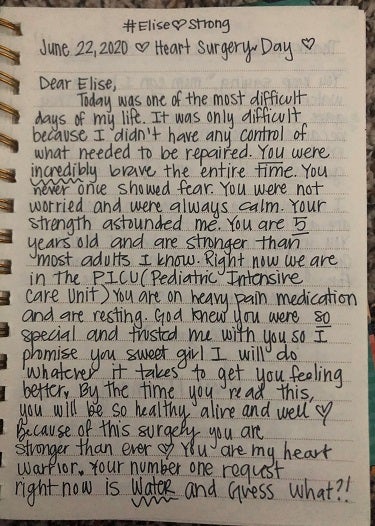 #Elise♡Strong
June 22, 2020 ♡ Heart Surgery Day ♡
Dear Elise,
Today was one of the most difficult
days of my life. It was only difficult
because I didn't have any control of
what needed to be repaired. You were
incredibly brave the entire time. You
never once showed fear. You were not
worried and were always calm. Your
strength astounded me. You are 5
years old and are stronger than
most adults I know. Right now we are
in the PICU (Pediatric Intensive
Care Unit) You are on heavy pain medication
and are resting. God knew you were so
special and trusted me with you so I
promise you sweet girl I will do
whatever it takes to get you feeling
better. By the time you read this,
you will be so healthy alive and well ♡
Because of this surgery you are
stronger than ever ♡ You are my heart
warrior. Your number one request
right now is water and Guess what?!